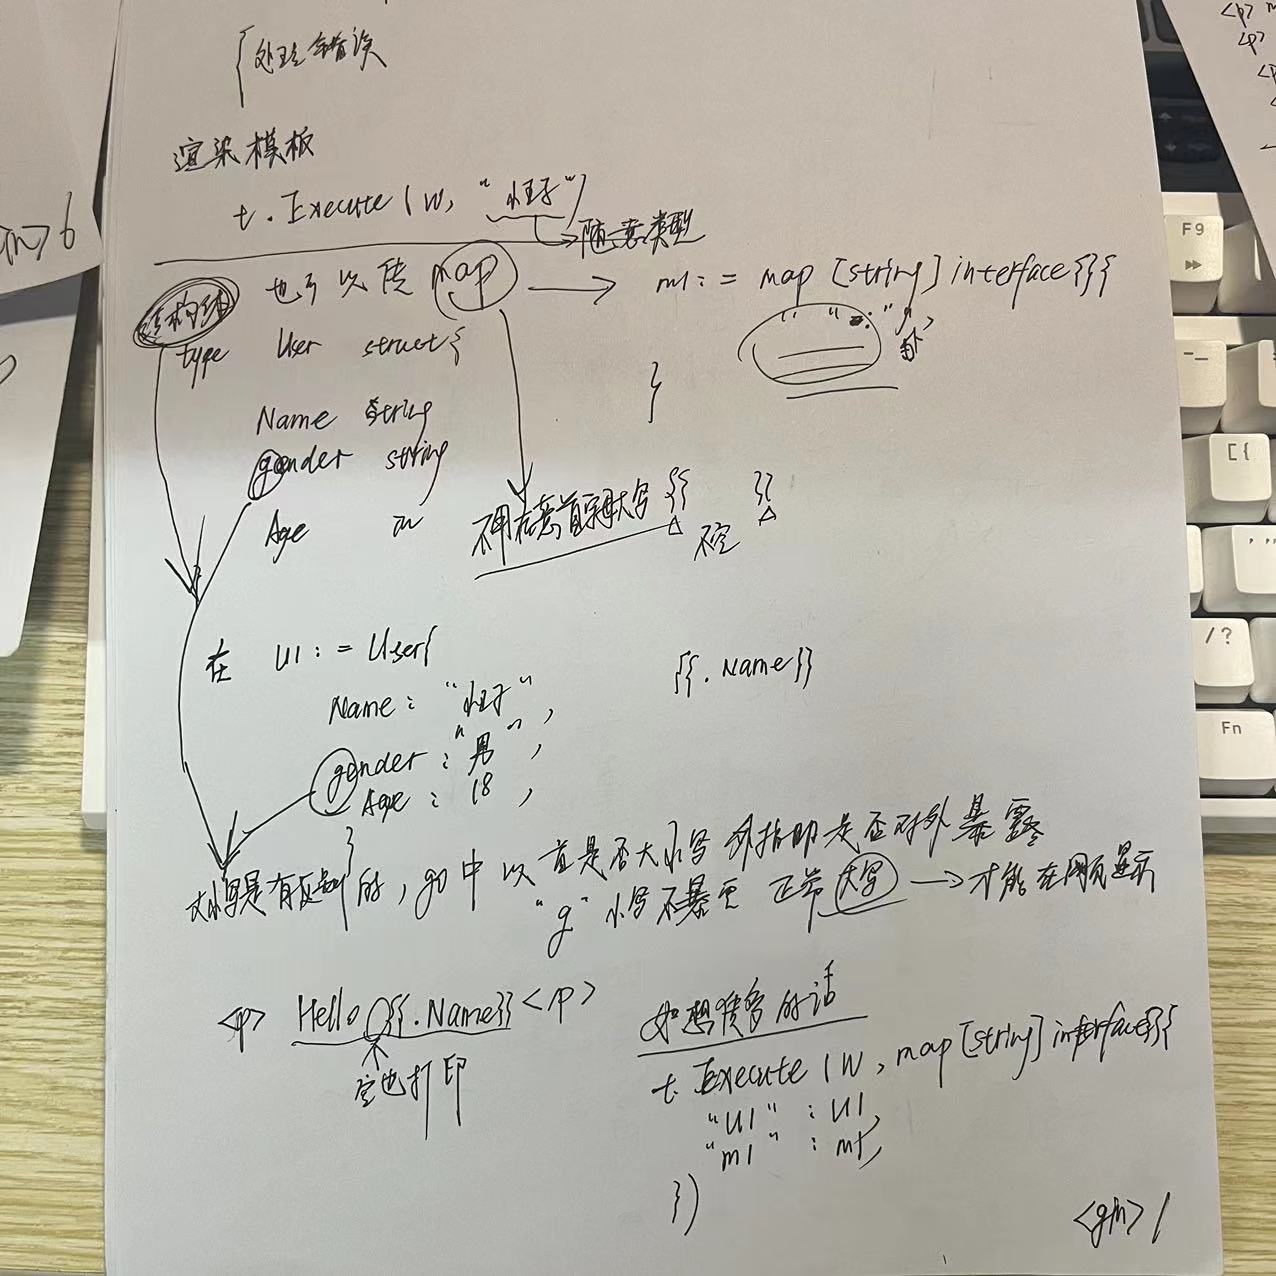 {处理错误
渲染模板
t.Execute(w, "小王子")
随意类型
结构体 也可以传 map → m1 := map[string]interface{}{
type User struct{
" " : " ",
}
Name string
gender string
Age in
不用在意首字母大写 {{ }}
不空
在 u1 := User{
{{.Name}}
Name : "小王子",
gender : "男",
Age : 18,
}
大小写是有区别的, go中以首是否大小写 是否对外暴露
"g" 小写不暴露 正常大写 → 才能在网页显示
<p> Hello {{.Name}} </p>
空也打印
如想传多的话
t.Execute(w, map[string]interface{}{
"u1" : u1,
"m1" : m1,
})
<gin> 1
<in> 6
F9
[ {
/ ?
Fn
<p>
<p>